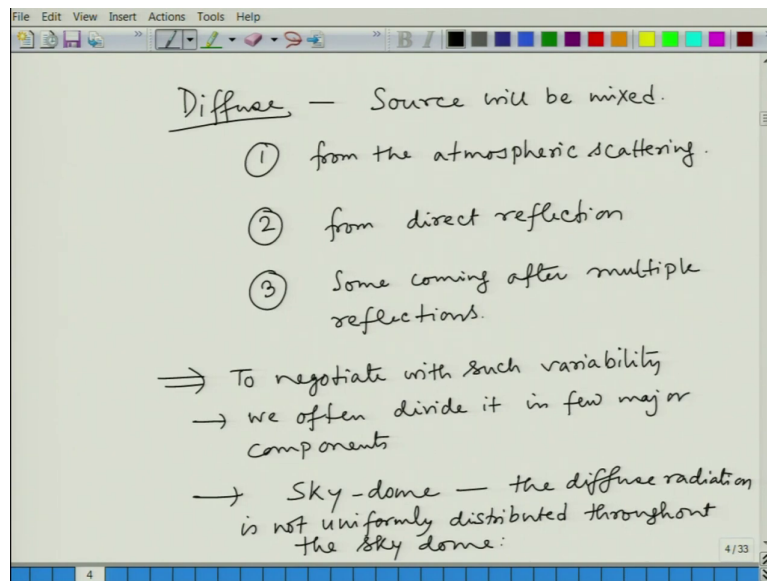 File Edit View Insert Actions Tools Help
B I
Diffuse — Source will be mixed.
① from the atmospheric scattering.
② from direct reflection
③ Some coming after multiple
reflections.
⇒ To negotiate with such variability
→ we often divide it in few major
components
→ Sky-dome — the diffuse radiation
is not uniformly distributed throughout
the sky dome:
4/33
4